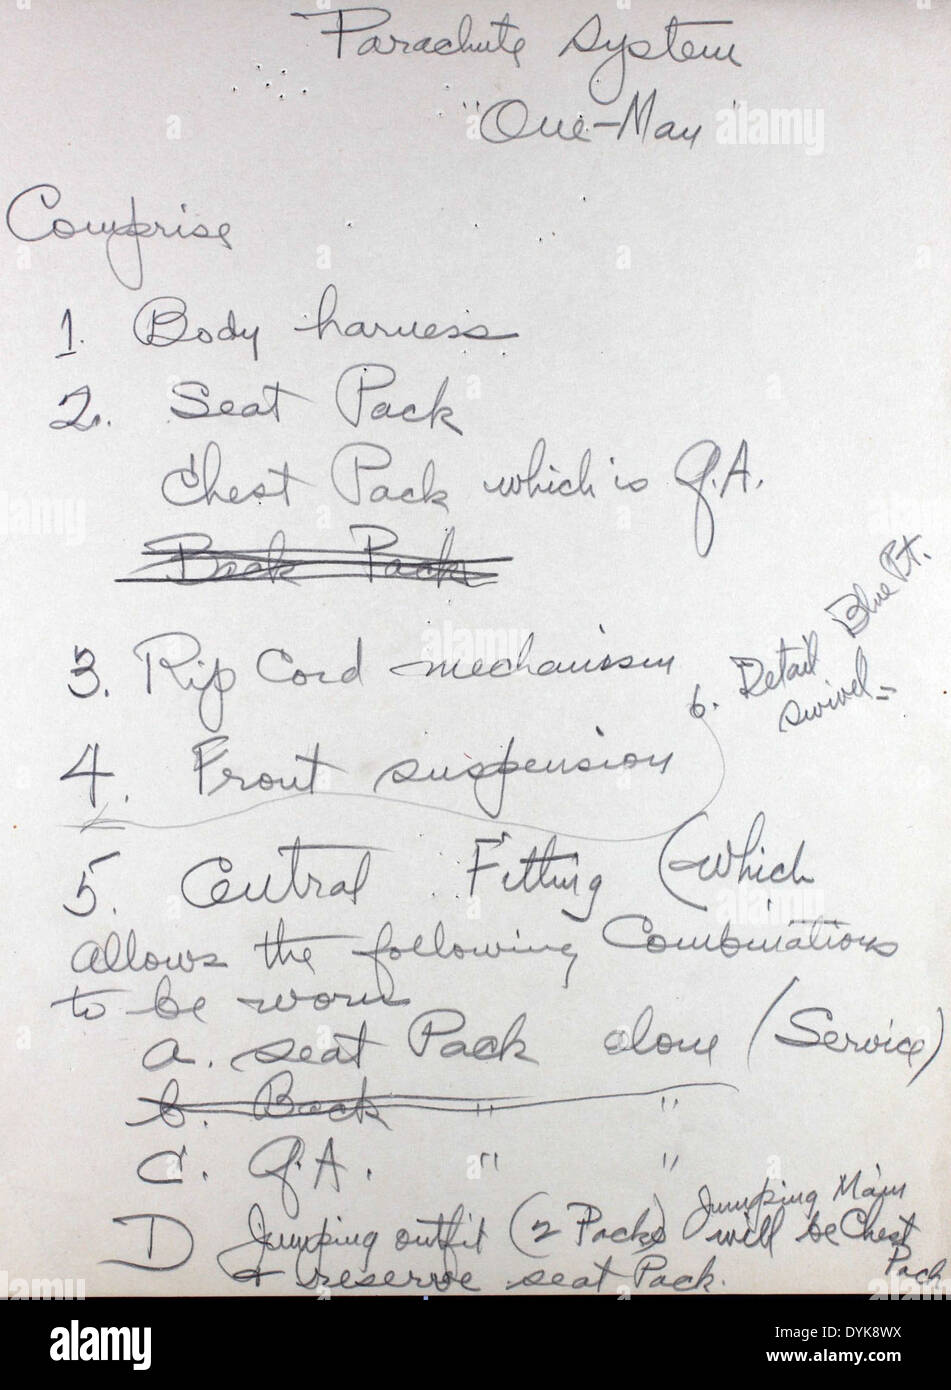 Parachute System
"One-Man"
Comprise
1. Body harness
2. Seat Pack
Chest Pack which is Q.A.
Back Pack
3. Rip Cord mechanism
6. Detail Blue Pt.
swivel -
4. Front suspension
5. Central Fitting (which
allows the following Combinations
to be worn
a. seat Pack alone (Service)
b. Back " "
c. Q.A. " "
D Jumping outfit (2 Packs) Jumping Main
will be Chest
Pack
+ reserve seat Pack.
a alamy
alamy
Image ID: DYK8WX
www.alamy.com